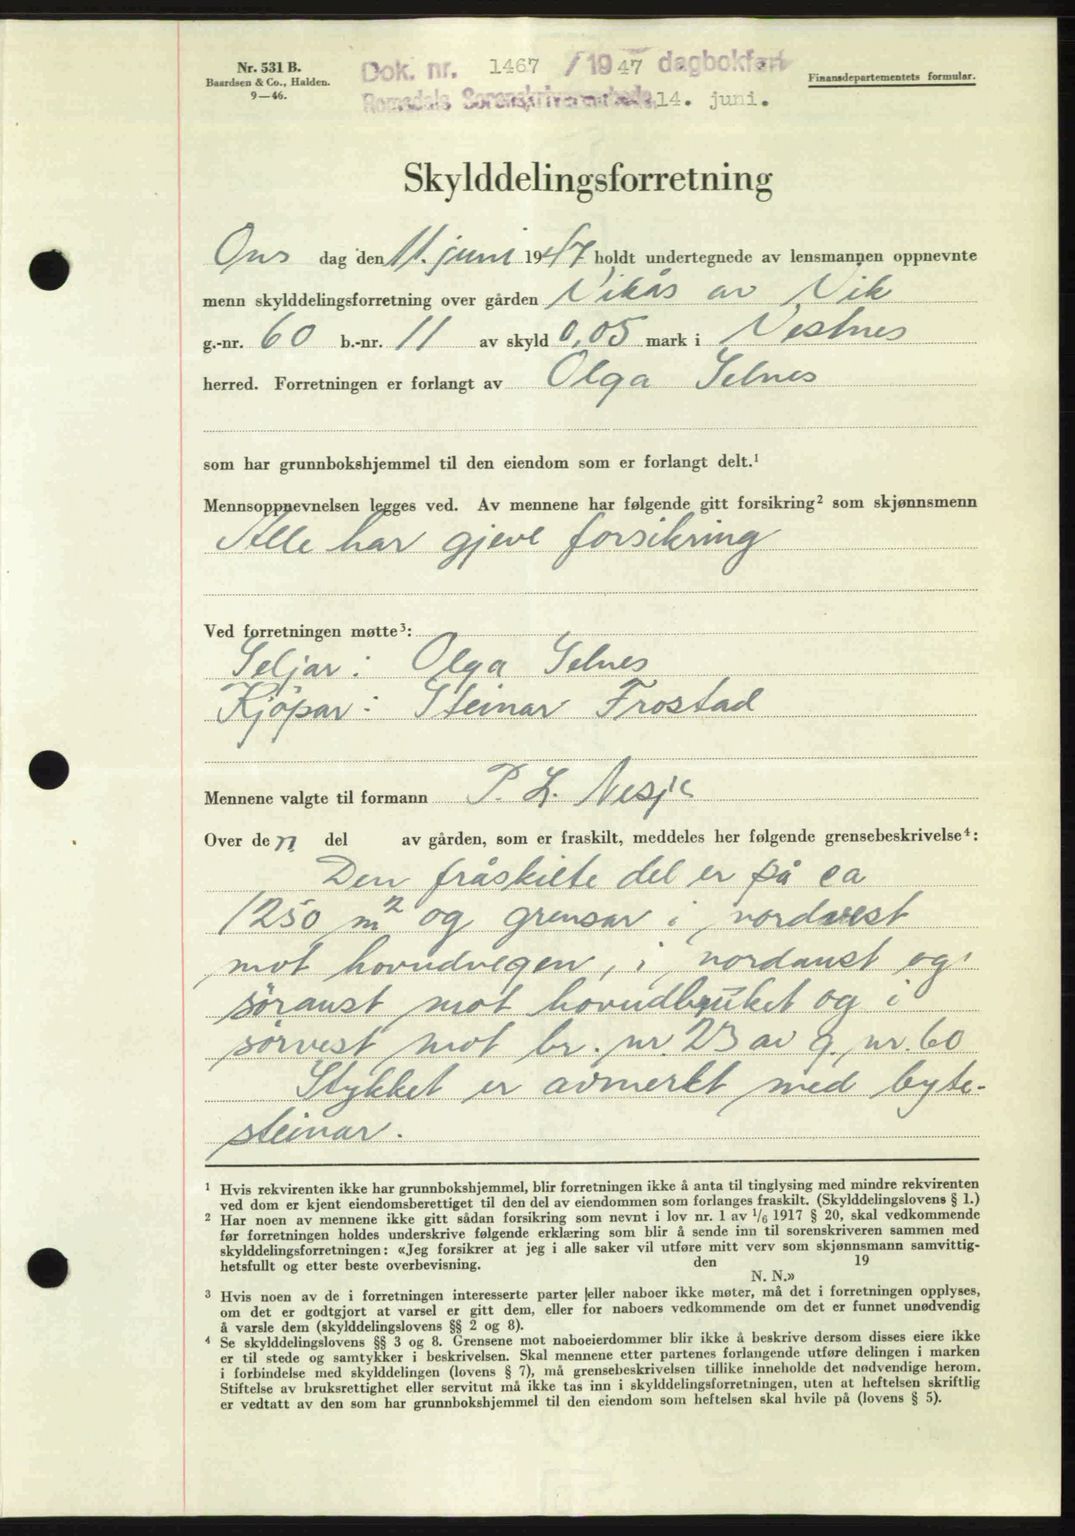 Nr. 531 B.
Baardsen & Co., Halden.
9—46.
Dok. nr. 1467 / 1947 dagbokført
Romsdals Sorenskriverembede, 14. juni.
Finansdepartementets formular.
Skylddelingsforretning
Ons dag den 11. juni 1947 holdt undertegnede av lensmannen oppnevnte
menn skylddelingsforretning over gården Vikås av Vik
g.-nr. 60 b.-nr. 11 av skyld 0,05 mark i Vestnes
herred. Forretningen er forlangt av Olga Selnes
som har grunnbokshjemmel til den eiendom som er forlangt delt.¹
Mennsoppnevnelsen legges ved. Av mennene har følgende gitt forsikring² som skjønnsmenn
Alle har gjeve forsikring
Ved forretningen møtte³:
Seljar: Olga Selnes
Kjöpar: Steinar Frostad
Mennene valgte til formann P. L. Nesje
Over den del av gården, som er fraskilt, meddeles her følgende grensebeskrivelse⁴:
Den fråskilte del er på ca
1250 m² og grensar i nordvest
mot hovudvegen, i nordaust og
söraust mot hovudbruket og i
sörvest mot br. nr. 23 av g. nr. 60
Stykket er avmerkt med byte-
steinar.
¹ Hvis rekvirenten ikke har grunnbokshjemmel, blir forretningen ikke å anta til tinglysing med mindre rekvirenten
ved dom er kjent eiendomsberettiget til den del av eiendommen som forlanges fraskilt. (Skylddelingslovens § 1.)
² Har noen av mennene ikke gitt sådan forsikring som nevnt i lov nr. 1 av 1/6 1917 § 20, skal vedkommende
før forretningen holdes underskrive følgende erklæring som blir å sende inn til sorenskriveren sammen med
skylddelingsforretningen: «Jeg forsikrer at jeg i alle saker vil utføre mitt verv som skjønnsmann samvittig-
hetsfullt og etter beste overbevisning. den 19
N. N.»
³ Hvis noen av de i forretningen interesserte parter eller naboer ikke møter, må det i forretningen opplyses,
om det er godtgjort at varsel er gitt dem, eller for naboers vedkommende om det er funnet unødvendig
å varsle dem (skylddelingslovens §§ 2 og 8).
⁴ Se skylddelingslovens §§ 3 og 8. Grensene mot naboeierdommer blir ikke å beskrive dersom disses eiere ikke
er til stede og samtykker i beskrivelsen. Skal mennene etter partenes forlangende utføre delingen i marken
i forbindelse med skylddelingen (lovens § 7), må grensebeskrivelsen tillike inneholde det nødvendige herom.
Stiftelse av bruksrettighet eller servitut må ikke tas inn i skylddelingsforretningen, uten at heftelsen skriftlig
er vedtatt av den som har grunnbokshjemmel til den eiendom som heftelsen skal hvile på (lovens § 5).